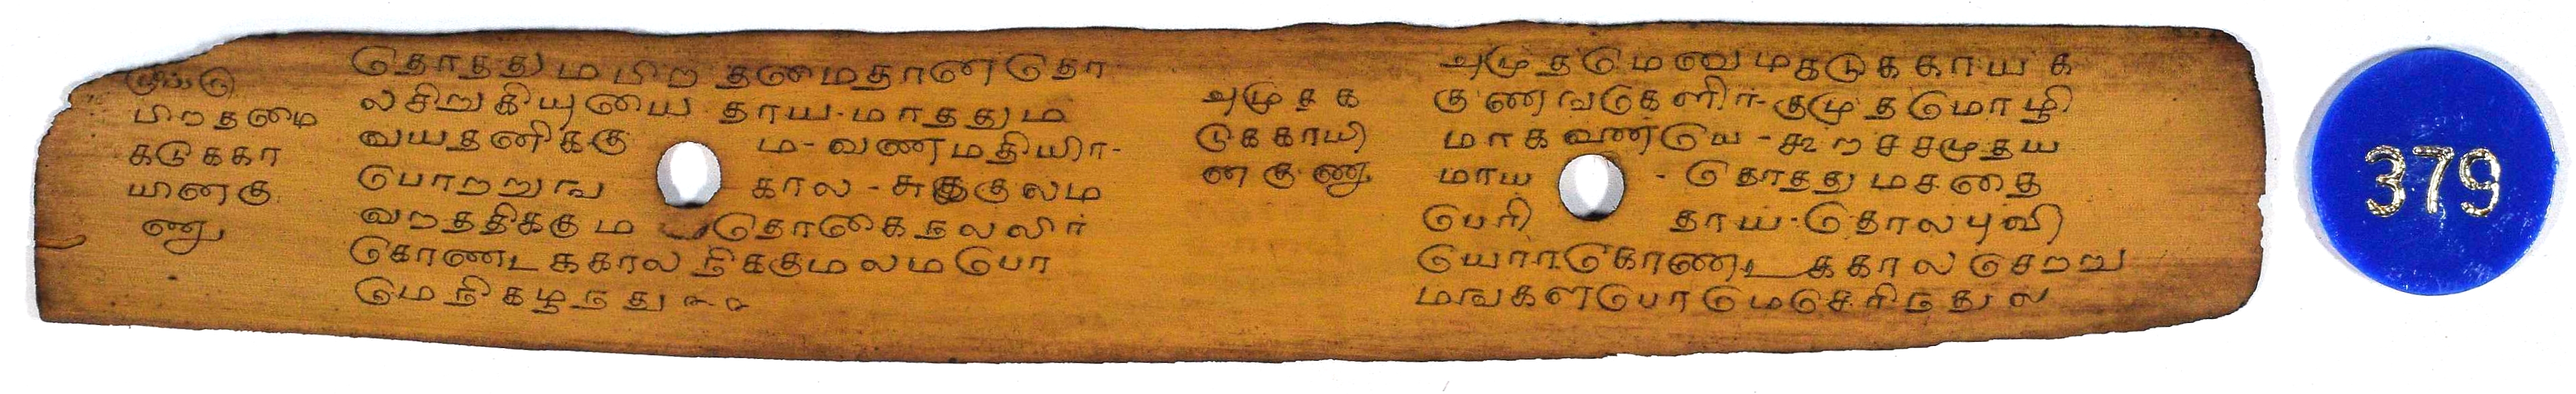 பிறதமை
கடுககா
யினகு
ணு
தொததுமபிற தமைதானதொ
லசிறுகியுயை தாய-மாததும
வயதனிககு ம-வணமதியிர-
பொறறுங கால-சுருகுலம
வறததிககும தொகைநலலிர
கொணடககால நிககுமலமபொ
மெநிகழநது
அமுதக
டுககாயி
னகுணு
அமுதமெனுமகடுககாயக
குணஙகளிர-குமுதமொழி
மாகவணடுய-கூறசசமுதய
மாய - தொததுமசதை
பெரி தாய-தொலபுவி
யொரகொணடககாலசெறறு
மஙகளபெரமெசெரிநதுல
379